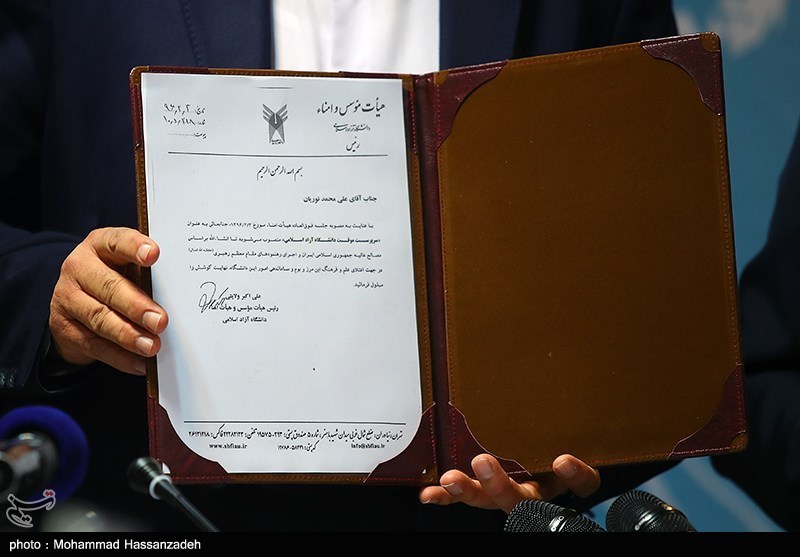 هیأت مؤسس و امناء
دانشگاه آزاد اسلامی
رئیس
تاریخ: ۹۶٫۲٫۳
شماره: ۱۰٫د٫۲۱۸
پیوست:
بسم الله الرحمن الرحیم
جناب آقای علی محمد نوریان
با عنایت به مصوبه جلسه فوق‌العاده هیأت امناء، مورخ ۱۳۹۶/۲/۳، جنابعالی به عنوان
«سرپرست موقت دانشگاه آزاد اسلامی» منصوب می‌شوید تا انشاءالله براساس
مصالح عالیه جمهوری اسلامی ایران و اجرای رهنمودهای مقام معظم رهبری
در جهت اعتلای علم و فرهنگ این مرز و بوم و ساماندهی امور این دانشگاه، نهایت کوشش را
مبذول فرمائید.
علی اکبر ولایتی
رئیس هیأت مؤسس و هیأت امناء
دانشگاه آزاد اسلامی
www.shfiau.ir
info@shfiau.ir
تسنیم
photo : Mohammad Hassanzadeh